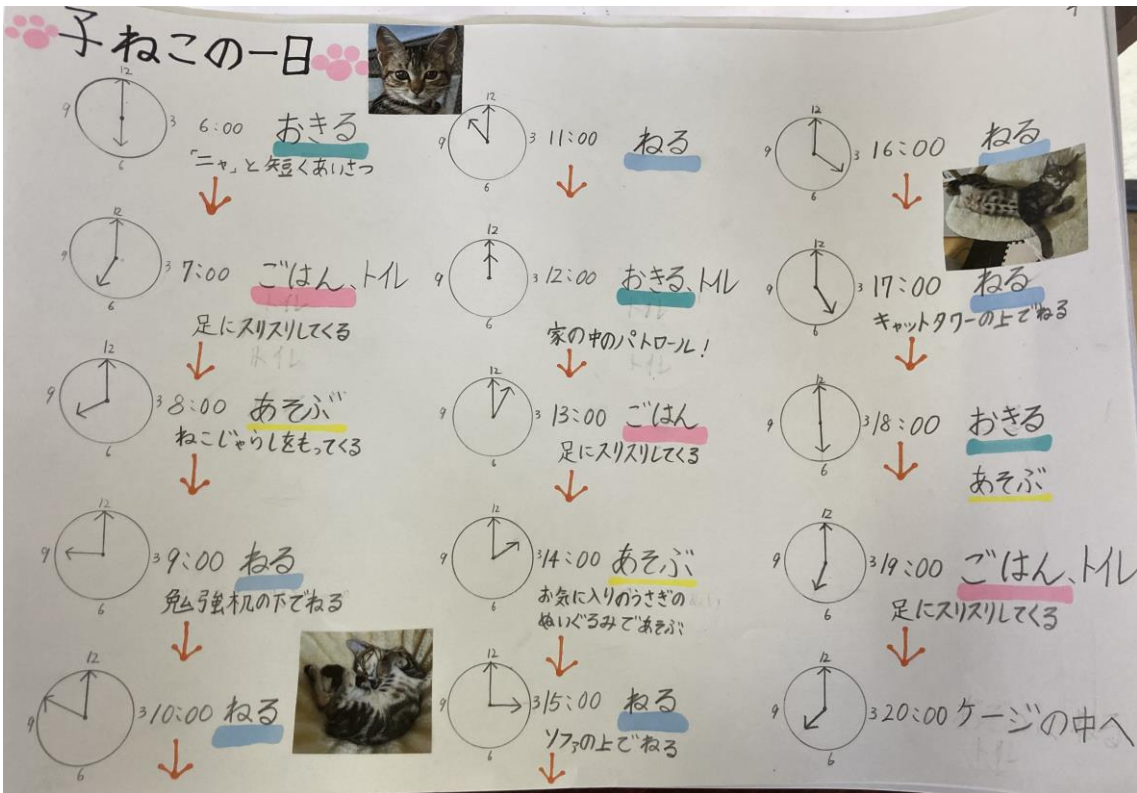 子ねこの一日
12
9
3
6
6:00 おきる
「ニャ」と短くあいさつ
12
9
3
6
7:00 ごはん、トイレ
足にスリスリしてくる
12
9
3
6
8:00 あそぶ
ねこじゃらしをもってくる
12
9
3
6
9:00 ねる
勉強机の下でねる
12
9
3
6
10:00 ねる
12
9
3
6
11:00 ねる
12
9
3
6
12:00 おきる、トイレ
家の中のパトロール!
12
9
3
6
13:00 ごはん
足にスリスリしてくる
12
9
3
6
14:00 あそぶ
お気に入りのうさぎの
ぬいぐるみであそぶ
12
9
3
6
15:00 ねる
ソファの上でねる
12
9
3
6
16:00 ねる
12
9
3
6
17:00 ねる
キャットタワーの上でねる
12
9
3
6
18:00 おきる
あそぶ
12
9
3
6
19:00 ごはん、トイレ
足にスリスリしてくる
12
9
3
6
20:00 ケージの中へ